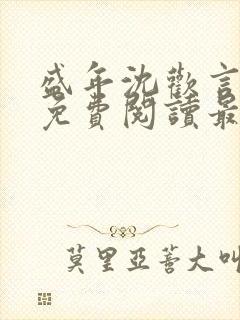 盛年沈歡言
免費閱讀最
莫里亞蒈大叫